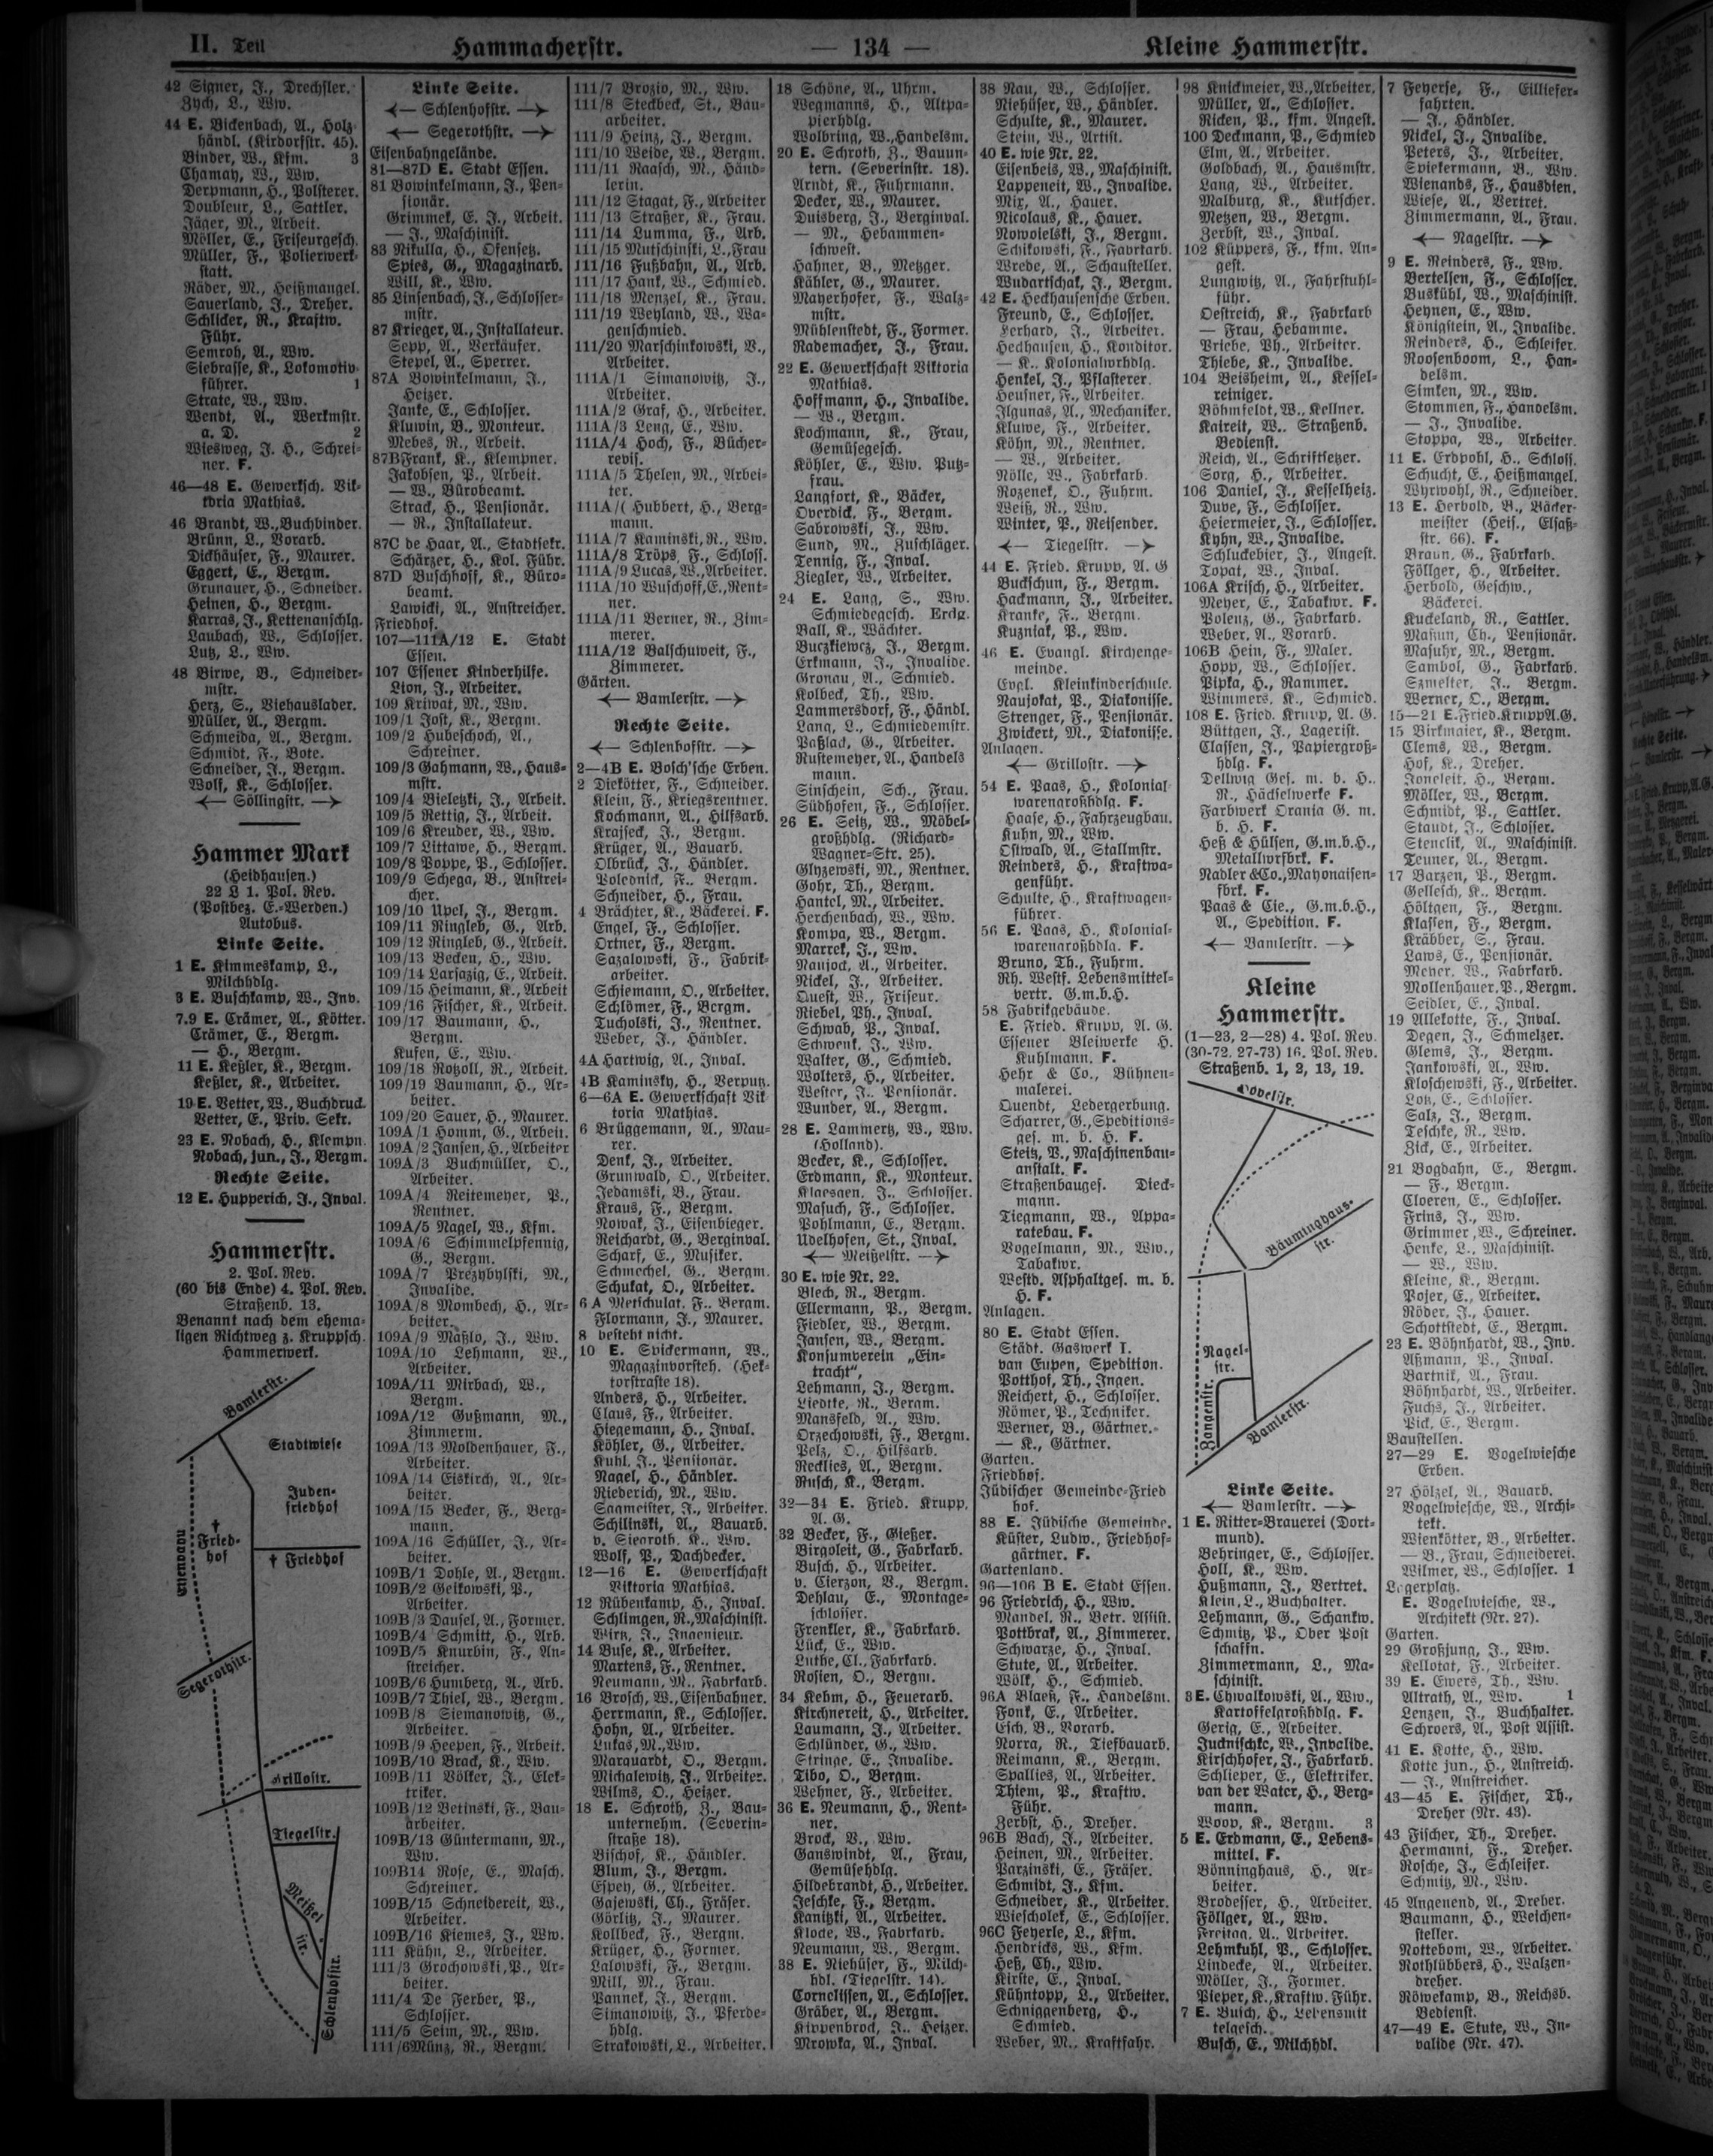 II. Teil
Hammacherstr.
— 134 —
Kleine Hammerstr.
42 Signer, J., Drechsler.
Zych, L., Ww.
44 E. Bickenbach, A., Holz-
händl. (Kirdorfstr. 45).
Binder, W., Kfm. 3
Chamay, W., Ww.
Derpmann, H., Polsterer.
Doubleur, L., Sattler.
Jäger, M., Arbeit.
Möller, E., Friseurgesch.
Müller, F., Polierwerk-
statt.
Räder, M., Heißmangel.
Sauerland, J., Dreher.
Schlicker, R., Kraftw.
Führ.
Semroh, A., Ww.
Siebrasse, K., Lokomotiv-
führer. 1
Strate, W., Ww.
Wendt, A., Werkmstr.
a. D. 2
Wiesweg, J. H., Schrei-
ner. F.
46—48 E. Gewerksch. Vik-
toria Mathias.
46 Brandt, W., Buchbinder.
Brünn, L., Vorarb.
Dickhäuser, F., Maurer.
Eggert, E., Bergm.
Grunauer, H., Schneider.
Heinen, H., Bergm.
Karras, J., Kettenanschlg.
Laubach, W., Schlosser.
Lutz, L., Ww.
48 Birwe, B., Schneider-
mstr.
Herz, S., Viehauslader.
Müller, A., Bergm.
Schmeida, A., Bergm.
Schmidt, F., Bote.
Schneider, J., Bergm.
Wolf, K., Schlosser.
← Söllingstr. →
Hammer Mark
(Heidhausen.)
22 L 1. Pol. Rev.
(Postbez. E.-Werden.)
Autobus.
Linke Seite.
1 E. Kimmeskamp, L.,
Milchhdlg.
3 E. Buschkamp, W., Inv.
7.9 E. Crämer, A., Kötter.
Crämer, E., Bergm.
— H., Bergm.
11 E. Keßler, K., Bergm.
Keßler, K., Arbeiter.
19 E. Vetter, W., Buchdruck.
Vetter, E., Priv. Sekr.
23 E. Nobach, H., Klempn.
Nobach, jun., J., Bergm.
Rechte Seite.
12 E. Hupperich, J., Inval.
Hammerstr.
2. Pol. Rev.
(60 bis Ende) 4. Pol. Rev.
Straßenb. 13.
Benannt nach dem ehema-
ligen Richtweg z. Kruppsch.
Hammerwerk.
Bamlerstr.
Stadtwiese
Juden-
friedhof
Fried-
hof
† Friedhof
Segerothstr.
Grillostr.
Tiegelstr.
Meißel
str.
Schlenhofstr.
Linke Seite.
← Schlenhofstr. →
← Segerothstr. →
Eisenbahngelände.
81—87D E. Stadt Essen.
81 Bowinkelmann, J., Pen-
sionär.
Grimmek, E. J., Arbeit.
— J., Maschinist.
83 Nikulla, H., Ofensetz.
Spies, G., Magazinarb.
Will, K., Ww.
85 Linsenbach, J., Schlosser-
mstr.
87 Krieger, A., Installateur.
Sepp, A., Verkäufer.
Stepel, A., Sperrer.
87A Bowinkelmann, J.,
Heizer.
Janke, E., Schlosser.
Kluwin, B., Monteur.
Mebes, R., Arbeit.
87B Frank, K., Klempner.
Jakobsen, P., Arbeit.
— W., Bürobeamt.
Strack, H., Pensionär.
— R., Installateur.
87C de Haar, A., Stadtsekr.
Schärzer, H., Kol. Führ.
87D Buschhoff, K., Büro-
beamt.
Lawicki, A., Anstreicher.
Friedhof.
107—111A/12 E. Stadt
Essen.
107 Essener Kinderhilfe.
Lion, J., Arbeiter.
109 Kriwat, M., Ww.
109/1 Jost, K., Bergm.
109/2 Hubeschoch, A.,
Schreiner.
109/3 Gahmann, W., Haus-
mstr.
109/4 Bieletzki, J., Arbeit.
109/5 Rettig, J., Arbeit.
109/6 Kreuder, W., Ww.
109/7 Littawe, H., Bergm.
109/8 Poppe, P., Schlosser.
109/9 Schega, B., Anstrei-
cher.
109/10 Upel, J., Bergm.
109/11 Ringleb, G., Arb.
109/12 Ringleb, G., Arbeit.
109/13 Becken, H., Ww.
109/14 Larsazig, E., Arbeit.
109/15 Heimann, K., Arbeit
109/16 Fischer, K., Arbeit.
109/17 Baumann, H.,
Bergm.
Kufen, E., Ww.
109/18 Rotzoll, R., Arbeit.
109/19 Baumann, H., Ar-
beiter.
109/20 Sauer, H., Maurer.
109A/1 Homm, G., Arbeit.
109A/2 Jansen, H., Arbeiter
109A/3 Buchmüller, O.,
Arbeiter.
109A/4 Reitemeyer, P.,
Rentner.
109A/5 Nagel, W., Kfm.
109A/6 Schimmelpfennig,
G., Bergm.
109A/7 Prezybylski, M.,
Invalide.
109A/8 Mombech, H., Ar-
beiter.
109A/9 Maßlo, J., Ww.
109A/10 Lehmann, W.,
Arbeiter.
109A/11 Mirbach, W.,
Bergm.
109A/12 Gußmann, M.,
Zimmerm.
109A/13 Moldenhauer, F.,
Arbeiter.
109A/14 Eiskirch, A., Ar-
beiter.
109A/15 Becker, F., Berg-
mann.
109A/16 Schüller, J., Ar-
beiter.
109B/1 Dohle, A., Bergm.
109B/2 Geikowski, P.,
Arbeiter.
109B/3 Dausel, A., Former.
109B/4 Schmitt, H., Arb.
109B/5 Knurbin, F., An-
streicher.
109B/6 Humberg, A., Arb.
109B/7 Thiel, W., Bergm.
109B/8 Siemanowitz, G.,
Arbeiter.
109B/9 Heepen, F., Arbeit.
109B/10 Brack, K., Ww.
109B/11 Völker, J., Elek-
triker.
109B/12 Betinski, F., Bau-
arbeiter.
109B/13 Güntermann, M.,
Ww.
109B14 Rose, E., Masch.
Schreiner.
109B/15 Schneidereit, W.,
Arbeiter.
109B/16 Kiemes, J., Ww.
111 Kühn, L., Arbeiter.
111/3 Grochowski, P., Ar-
beiter.
111/4 De Ferber, P.,
Schlosser.
111/5 Seim, M., Ww.
111/6 Münz, R., Bergm.
111/7 Brozio, M., Ww.
111/8 Steckbeck, St., Bau-
arbeiter.
111/9 Heinz, J., Bergm.
111/10 Weide, W., Bergm.
111/11 Raasch, M., Händ-
lerin.
111/12 Stagat, F., Arbeiter
111/13 Straßer, K., Frau.
111/14 Lumma, F., Arb.
111/15 Mutschinski, L., Frau
111/16 Fußbahn, A., Arb.
111/17 Hank, W., Schmied.
111/18 Menzel, K., Frau.
111/19 Weyland, W., Wa-
genschmied.
111/20 Marschinkowski, V.,
Arbeiter.
111A/1 Simanowitz, J.,
Arbeiter.
111A/2 Graf, H., Arbeiter.
111A/3 Leng, E., Ww.
111A/4 Hoch, F., Bücher-
revis.
111A/5 Thelen, M., Arbei-
ter.
111A/( Hubbert, H., Berg-
mann.
111A/7 Kaminski, R., Ww.
111A/8 Tröps, F., Schloss.
111A/9 Lucas, W., Arbeiter.
111A/10 Wuschoff, E., Rent-
ner.
111A/11 Berner, R., Zim-
merer.
111A/12 Balschuweit, F.,
Zimmerer.
Gärten.
← Bamlerstr. →
Rechte Seite.
← Schlenhofstr. →
2—4B E. Bosch'sche Erben.
2 Diekötter, F., Schneider.
Klein, F., Kriegsrentner.
Kochmann, A., Hilfsarb.
Krajseck, J., Bergm.
Krüger, A., Bauarb.
Olbrück, J., Händler.
Polednick, F., Bergm.
Schneider, H., Frau.
4 Brächter, K., Bäckerei. F.
Engel, F., Schlosser.
Ortner, F., Bergm.
Sazalowski, F., Fabrik-
arbeiter.
Schiemann, O., Arbeiter.
Schlömer, F., Bergm.
Tucholski, J., Rentner.
Weber, J., Händler.
4A Hartwig, A., Inval.
4B Kaminsky, H., Verputz.
6—6A E. Gewerkschaft Vik
toria Mathias.
6 Brüggemann, A., Mau-
rer.
Denk, J., Arbeiter.
Grunwald, O., Arbeiter.
Jedamski, B., Frau.
Kraus, F., Bergm.
Nowak, J., Eisenbieger.
Reichardt, G., Berginval.
Scharf, E., Musiker.
Schmechel, G., Bergm.
Schukat, O., Arbeiter.
6 A Metschulat, F., Bergm.
Flormann, J., Maurer.
8 besteht nicht.
10 E. Spickermann, W.,
Magazinvorsteh. (Hek-
torstraße 18).
Anders, H., Arbeiter.
Claus, F., Arbeiter.
Hiegemann, H., Inval.
Köhler, G., Arbeiter.
Kuhl, J., Pensionär.
Nagel, H., Händler.
Riederich, M., Ww.
Sagmeister, J., Arbeiter.
Schilinski, A., Bauarb.
v. Siegroth, K., Ww.
Wolf, P., Dachdecker.
12—16 E. Gewerkschaft
Viktoria Mathias.
12 Rübenkamp, H., Inval.
Schlimgen, R., Maschinist.
Wirtz, J., Ingenieur.
14 Buse, K., Arbeiter.
Martens, F., Rentner.
Neumann, M., Fabrkarb.
16 Brosch, W., Eisenbahner.
Herrmann, K., Schlosser.
Hohn, A., Arbeiter.
Lukas, M., Ww.
Marquardt, O., Bergm.
Michalewitz, J., Arbeiter.
Wilms, O., Heizer.
18 E. Schroth, Z., Bau-
unternehm. (Severin-
straße 18).
Bischof, K., Händler.
Blum, J., Bergm.
Espey, G., Arbeiter.
Gajewski, Ch., Fräser.
Görlitz, J., Maurer.
Kollbeck, F., Bergm.
Krüger, H., Former.
Lalowski, F., Bergm.
Mill, M., Frau.
Pannek, J., Bergm.
Simanowitz, J., Pferde-
hdlg.
Strakowski, L., Arbeiter.
18 Schöne, A., Uhrm.
Wegmanns, H., Altpa-
pierhdlg.
Wolbring, W., Handelsm.
20 E. Schroth, Z., Bauun-
tern. (Severinstr. 18).
Arndt, K., Fuhrmann.
Decker, W., Maurer.
Duisberg, J., Berginval.
— M., Hebammen-
schwest.
Hahner, B., Metzger.
Kähler, G., Maurer.
Mayerhofer, F., Walz-
mstr.
Mühlenstedt, F., Former.
Rademacher, J., Frau.
22 E. Gewerkschaft Viktoria
Mathias.
Hoffmann, H., Invalide.
— W., Bergm.
Kochmann, K., Frau,
Gemüsegesch.
Köhler, E., Ww. Putz-
frau.
Langfort, K., Bäcker,
Overdick, F., Bergm.
Sabrowski, J., Ww.
Sund, M., Zuschläger.
Tennig, F., Inval.
Ziegler, W., Arbeiter.
24 E. Lang, S., Ww.
Schmiedegesch. Erdg.
Ball, K., Wächter.
Buczkiewcz, J., Bergm.
Erkmann, J., Invalide.
Gronau, A., Schmied.
Kolbeck, Th., Ww.
Lammersdorf, F., Händl.
Lang, L., Schmiedemstr.
Paßlack, G., Arbeiter.
Rustemeyer, A., Handels
mann.
Sinschein, Sch., Frau.
Südhofen, F., Schlosser.
26 E. Seitz, W., Möbel-
großhdlg. (Richard-
Wagner-Str. 25).
Glyzewski, M., Rentner.
Gohr, Th., Bergm.
Hantel, M., Arbeiter.
Herchenbach, W., Ww.
Kompa, W., Bergm.
Marrek, J., Ww.
Naujock, A., Arbeiter.
Nickel, J., Arbeiter.
Quest, W., Friseur.
Riebel, Ph., Inval.
Schwab, P., Inval.
Schwenk, J., Ww.
Walter, G., Schmied.
Wolters, H., Arbeiter.
Wester, J., Pensionär.
Wunder, A., Bergm.
28 E. Lammertz, W., Ww.
(Holland).
Becker, K., Schlosser.
Erdmann, K., Monteur.
Klaesgen, J., Schlosser.
Masuch, F., Schlosser.
Pohlmann, E., Bergm.
Udelhofen, St., Inval.
← Meißelstr. →
30 E. wie Nr. 22.
Blech, R., Bergm.
Ellermann, P., Bergm.
Fiedler, W., Bergm.
Jansen, W., Bergm.
Konsumverein „Ein-
tracht",
Lehmann, J., Bergm.
Liedtke, R., Bergm.
Mansfeld, A., Ww.
Orzechowski, F., Bergm.
Pelz, O., Hilfsarb.
Recklies, A., Bergm.
Rusch, K., Bergm.
32—34 E. Fried. Krupp,
A. G.
32 Becker, F., Gießer.
Birgoleit, G., Fabrkarb.
Busch, H., Arbeiter.
v. Cierzon, B., Bergm.
Dehlau, E., Montage-
schlosser.
Frenkler, K., Fabrkarb.
Lück, E., Ww.
Luthe, Cl., Fabrkarb.
Rosien, O., Bergm.
34 Kehm, H., Feuerarb.
Kirchnereit, H., Arbeiter.
Laumann, J., Arbeiter.
Schlünder, G., Ww.
Stringe, E., Invalide.
Tibo, O., Bergm.
Wehner, F., Arbeiter.
36 E. Neumann, H., Rent-
ner.
Brock, B., Ww.
Ganswindt, A., Frau,
Gemüsehdlg.
Hildebrandt, H., Arbeiter.
Jeschke, F., Bergm.
Kanitzki, A., Arbeiter.
Klode, W., Fabrkarb.
Neumann, W., Bergm.
38 E. Niehüser, F., Milch-
hdl. (Tiegelstr. 14).
Cornelissen, A., Schlosser.
Gräber, A., Bergm.
Kippenbrock, J., Heizer.
Mrowka, A., Inval.
38 Nau, W., Schlosser.
Niehüser, W., Händler.
Schulte, K., Maurer.
Stein, W., Artist.
40 E. wie Nr. 22.
Eisenbeis, W., Maschinist.
Lappeneit, W., Invalide.
Mix, A., Hauer.
Nicolaus, K., Hauer.
Nowolelski, J., Bergm.
Schikowski, F., Fabrkarb.
Wrede, A., Schausteller.
Wudartschak, J., Bergm.
42 E. Heckhausensche Erben.
Freund, E., Schlosser.
Gerhard, J., Arbeiter.
Heckhausen, H., Konditor.
— K., Kolonialwrhdlg.
Henkel, J., Pflasterer.
Heufner, F., Arbeiter.
Ilgunas, A., Mechaniker.
Kluwe, F., Arbeiter.
Köhn, M., Rentner.
— W., Arbeiter.
Nölle, W., Fabrkarb.
Rozenek, O., Fuhrm.
Weiß, R., Ww.
Winter, P., Reisender.
← Tiegelstr. →
44 E. Fried. Krupp, A. G
Buckschun, F., Bergm.
Hackmann, J., Arbeiter.
Kranke, F., Bergm.
Kuzniak, P., Ww.
46 E. Evangl. Kirchenge-
meinde.
Evgl. Kleinkinderschule.
Naujokat, P., Diakonisse.
Strenger, F., Pensionär.
Zwickert, M., Diakonisse.
Anlagen.
← Grillostr. →
54 E. Paas, H., Kolonial-
warengroßhdlg. F.
Haase, H., Fahrzeugbau.
Kuhn, M., Ww.
Ostwald, A., Stallmstr.
Reinders, H., Kraftwa-
genführ.
Schulte, H., Kraftwagen-
führer.
56 E. Paas, H., Kolonial-
warengroßhdlg. F.
Bruno, Th., Fuhrm.
Rh. Westf. Lebensmittel-
vertr. G.m.b.H.
58 Fabrikgebäude.
E. Fried. Krupp, A. G.
Essener Bleiwerke H.
Kuhlmann. F.
Hehr & Co., Bühnen-
malerei.
Quendt, Ledergerbung.
Scharrer, G., Speditions-
ges. m. b. H. F.
Steitz, P., Maschinenbau-
anstalt. F.
Straßenbauges. Dieck-
mann.
Tiegmann, W., Appa-
ratebau. F.
Vogelmann, M., Ww.,
Tabakwr.
Westd. Asphaltges. m. b.
H. F.
Anlagen.
80 E. Stadt Essen.
Städt. Gaswerk I.
van Eupen, Spedition.
Potthof, Th., Ingen.
Reichert, H., Schlosser.
Römer, P., Techniker.
Werner, B., Gärtner.
— K., Gärtner.
Garten.
Friedhof.
Jüdischer Gemeinde-Fried
hof.
88 E. Jüdische Gemeinde.
Küster, Ludw., Friedhof-
gärtner. F.
Gartenland.
96—106 B E. Stadt Essen.
96 Friedrich, H., Ww.
Mandel, R., Betr. Assist.
Pottbrak, A., Zimmerer.
Schwarze, H., Inval.
Stute, A., Arbeiter.
Wölk, H., Schmied.
96A Blaeß, F., Handelsm.
Fonk, E., Arbeiter.
Eich, B., Vorarb.
Norra, R., Tiefbauarb.
Reimann, K., Bergm.
Spallies, A., Arbeiter.
Thiem, P., Kraftw.
Führ.
Zerbst, H., Dreher.
96B Bach, J., Arbeiter.
Heinen, M., Arbeiter.
Parzinski, E., Fräser.
Schmidt, J., Kfm.
Schneider, K., Arbeiter.
Wiescholek, E., Schlosser.
96C Feyerle, L., Kfm.
Hendricks, W., Kfm.
Heß, Ch., Ww.
Kirste, E., Inval.
Kühntopp, L., Arbeiter.
Schniggenberg, H.,
Schmied.
Weber, M., Kraftfahr.
98 Knickmeier, W., Arbeiter.
Müller, A., Schlosser.
Ricken, P., kfm. Angest.
100 Deckmann, P., Schmied
Elm, A., Arbeiter.
Goldbach, A., Hausmstr.
Lang, W., Arbeiter.
Malburg, K., Kutscher.
Metzen, W., Bergm.
Zerbst, W., Inval.
102 Küppers, F., kfm. An-
gest.
Lungwitz, A., Fahrstuhl-
führ.
Oestreich, K., Fabrkarb
— Frau, Hebamme.
Priebe, Ph., Arbeiter.
Thiebe, K., Invalide.
104 Beisheim, A., Kessel-
reiniger.
Böhmfeldt, W., Kellner.
Kaireit, W., Straßenb.
Bedienst.
Reich, A., Schriftsetzer.
Sorg, H., Arbeiter.
106 Daniel, J., Kesselheiz.
Duve, F., Schlosser.
Heiermeier, J., Schlosser.
Kyhn, W., Invalide.
Schluckebier, J., Angest.
Topat, W., Inval.
106A Krisch, H., Arbeiter.
Meyer, E., Tabakwr. F.
Polenz, G., Fabrkarb.
Weber, A., Vorarb.
106B Hein, F., Maler.
Hopp, W., Schlosser.
Pipka, H., Rammer.
Wimmers, K., Schmied.
108 E. Fried. Krupp, A. G.
Büttgen, J., Lagerist.
Classen, J., Papiergroß-
hdlg. F.
Dellwig Ges. m. b. H.,
R., Häckselwerke F.
Farbwerk Orania G. m.
b. H. F.
Heß & Hülsen, G.m.b.H.,
Metallwrfbrk. F.
Nadler & Co., Mayonaisen-
fbrk. F.
Paas & Cie., G.m.b.H.,
A., Spedition. F.
← Bamlerstr. →
Kleine
Hammerstr.
(1—23, 2—28) 4. Pol. Rev.
(30-72, 27-73) 16. Pol. Rev.
Straßenb. 1, 2, 13, 19.
Bäuminghaus-
str.
Nagel-
str.
Bamlerstr.
Linke Seite.
← Bamlerstr. →
1 E. Ritter-Brauerei (Dort-
mund).
Behringer, E., Schlosser.
Holl, K., Ww.
Hußmann, J., Vertret.
Klein, L., Buchhalter.
Lehmann, G., Schankw.
Schmitz, P., Ober Post
schaffn.
Zimmermann, L., Ma-
schinist.
3 E. Chwalkowski, A., Ww.,
Kartoffelgroßhdlg. F.
Gerig, E., Arbeiter.
Judnischke, W., Invalide.
Kirschhofer, J., Fabrkarb.
Schlieper, E., Elektriker.
van der Water, H., Berg-
mann.
Woop, K., Bergm. 3
5 E. Erdmann, E., Lebens-
mittel. F.
Bönninghaus, H., Ar-
beiter.
Brodesser, H., Arbeiter.
Föllger, A., Ww.
Freitag, A., Arbeiter.
Lehmkuhl, P., Schlosser.
Lindecke, A., Arbeiter.
Möller, J., Former.
Pieper, K., Kraftw. Führ.
7 E. Busch, H., Lebensmit
telgesch.
Busch, E., Milchhdl.
7 Feyerse, F., Eilliefer-
fahrten.
— J., Händler.
Nickel, J., Invalide.
Peters, J., Arbeiter.
Spiekermann, B., Ww.
Wienands, F., Hausdien.
Wiese, A., Vertret.
Zimmermann, A., Frau.
← Nagelstr. →
9 E. Reinders, F., Ww.
Bertelsen, F., Schlosser.
Buskühl, W., Maschinist.
Heynen, E., Ww.
Königstein, A., Invalide.
Reinders, H., Schleifer.
Roosenboom, L., Han-
delsm.
Simken, M., Ww.
Stommen, F., Handelsm.
— J., Invalide.
Stoppa, W., Arbeiter.
11 E. Erdpohl, H., Schloss.
Schucht, E., Heißmangel.
Wyrwohl, R., Schneider.
13 E. Herbold, B., Bäcker-
meister (Heis., Elsaß-
str. 66). F.
Braun, G., Fabrkarb.
Föllger, H., Arbeiter.
Herbold, Geschw.,
Bäckerei.
Kuckeland, R., Sattler.
Maßun, Ch., Pensionär.
Masuhr, M., Bergm.
Sambol, G., Fabrkarb.
Szmelter, J., Bergm.
Werner, O., Bergm.
15—21 E. Fried. Krupp A.G.
15 Birkmaier, K., Bergm.
Clems, W., Bergm.
Hof, K., Dreher.
Joneleit, H., Bergm.
Möller, W., Bergm.
Schmidt, P., Sattler.
Staudt, J., Schlosser.
Stenclik, A., Maschinist.
Teuner, A., Bergm.
17 Barzen, P., Bergm.
Gellesch, K., Bergm.
Höltgen, F., Bergm.
Klassen, F., Bergm.
Kräbber, S., Frau.
Laws, E., Pensionär.
Meyer, W., Fabrkarb.
Mollenhauer, P., Bergm.
Seidler, E., Inval.
19 Allekotte, F., Inval.
Degen, J., Schmelzer.
Glems, J., Bergm.
Jankowski, A., Ww.
Kloschewski, F., Arbeiter.
Lotz, E., Schlosser.
Salz, J., Bergm.
Teschke, R., Ww.
Zick, E., Arbeiter.
21 Bogdahn, E., Bergm.
— F., Bergm.
Cloeren, E., Schlosser.
Frins, J., Ww.
Grimmer, W., Schreiner.
Henke, L., Maschinist.
— W., Ww.
Kleine, K., Bergm.
Pojer, E., Arbeiter.
Röder, J., Hauer.
Schottstedt, E., Bergm.
23 E. Böhnhardt, W., Inv.
Aßmann, P., Inval.
Bartnik, A., Frau.
Böhnhardt, W., Arbeiter.
Fuchs, J., Arbeiter.
Pick, E., Bergm.
Baustellen.
27—29 E. Vogelwiesche
Erben.
27 Hölzel, A., Bauarb.
Vogelwiesche, W., Archi-
tekt.
Wienkötter, B., Arbeiter.
— B., Frau, Schneiderei.
Wilmer, W., Schlosser. 1
Lagerplatz.
E. Vogelwiesche, W.,
Architekt (Nr. 27).
Garten.
29 Großjung, J., Ww.
Kellotat, F., Arbeiter.
39 E. Ewers, Th., Ww.
Altrath, A., Ww. 1
Lenzen, J., Buchhalter.
Schroers, A., Post Assist.
41 E. Kotte, H., Ww.
Kotte jun., H., Anstreich.
— J., Anstreicher.
43—45 E. Fischer, Th.,
Dreher (Nr. 43).
43 Fischer, Th., Dreher.
Hermanni, F., Dreher.
Rosche, J., Schleifer.
Schmitz, M., Ww.
45 Angenend, A., Dreher.
Baumann, H., Weichen-
steller.
Nottebom, W., Arbeiter.
Rothlübbers, H., Walzen-
dreher.
Röwekamp, B., Reichsb.
Bedienst.
47—49 E. Stute, W., In-
valide (Nr. 47).